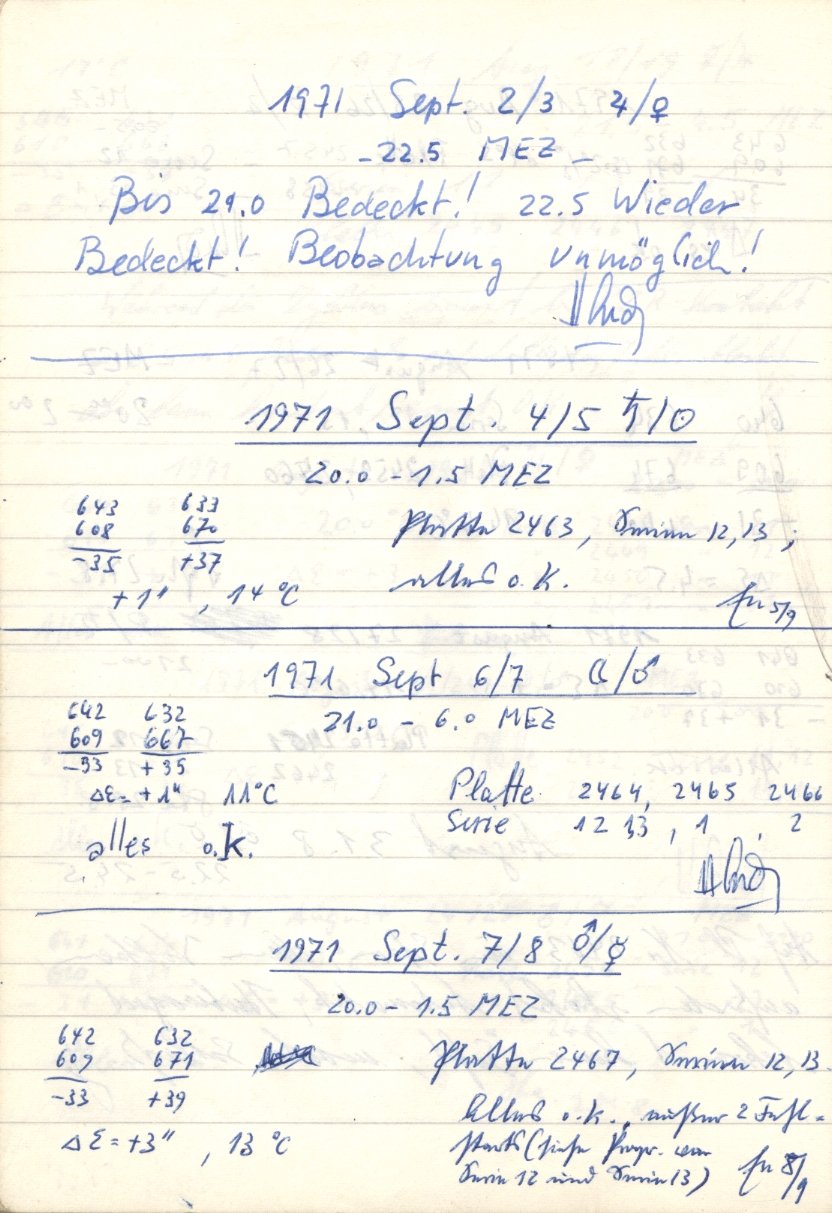 1971 Sept. 2/3 ♃/♀
- 22.5 MEZ -
Bis 21.0 Bedeckt! 22.5 Wieder
Bedeckt! Beobachtung unmöglich!
1971 Sept. 4/5 ♄/☉
20.0 - 1.5 MEZ
643 633
608 670 Platte 2463, Serien 12, 13;
-35 +37
alles o.k.
+1" , 14 °C
5/9
1971 Sept 6/7 ☾/♂
21.0 - 6.0 MEZ
642 632
609 667
-33 +35
Δε = +1" 11°C Platte 2464, 2465 2466
Serie 12 13, 1, 2
alles o.k.
1971 Sept. 7/8 ♂/☿
20.0 - 1.5 MEZ
642 632
609 671 Platte 2467, Serien 12, 13.
-33 +39
Alles o.k., außer 2 Fehl-
Δε = +3" , 13 °C starts (siehe Progr. von
Serie 12 und Serie 13) 8/9